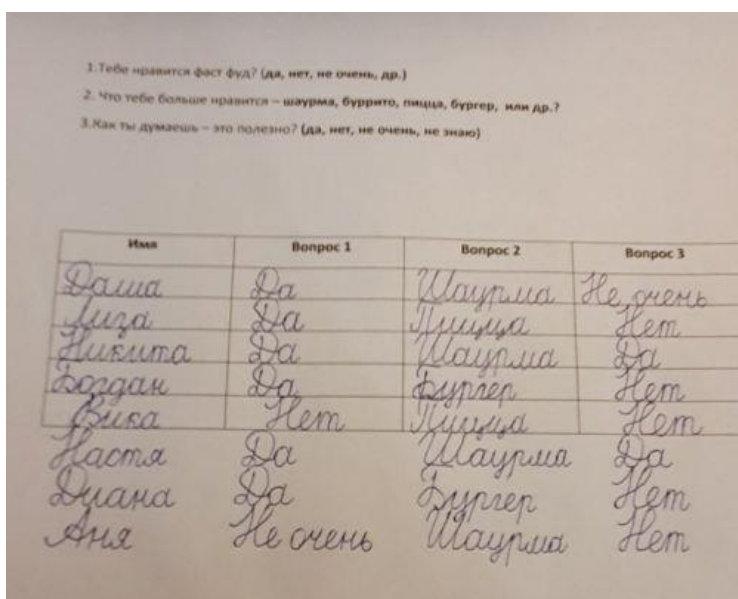 1.Тебе нравится фаст фуд? (да, нет, не очень, др.)
2. Что тебе больше нравится – шаурма, буррито, пицца, бургер, или др.?
3.Как ты думаешь – это полезно? (да, нет, не очень, не знаю)
Имя Вопрос 1 Вопрос 2 Вопрос 3
Даша Да Шаурма Не очень
Лиза Да Пицца Нет
Никита Да Шаурма Да
Богдан Да Бургер Нет
Вика Нет Пицца Нет
Настя Да Шаурма Да
Диана Да Бургер Нет
Аня Не очень Шаурма Нет